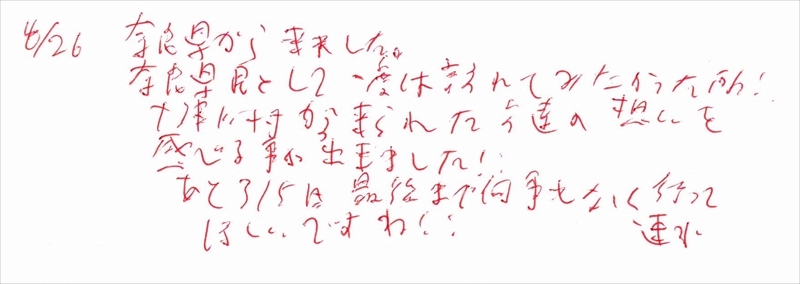 4/26 奈良県から来ました。
奈良県民として一度は訪れてみたかった所!
十津川村から来られた方達の想いを
感じる事が出来ました!!
あと3/5は最後まで何事もなく行って
ほしいですね!!
速水